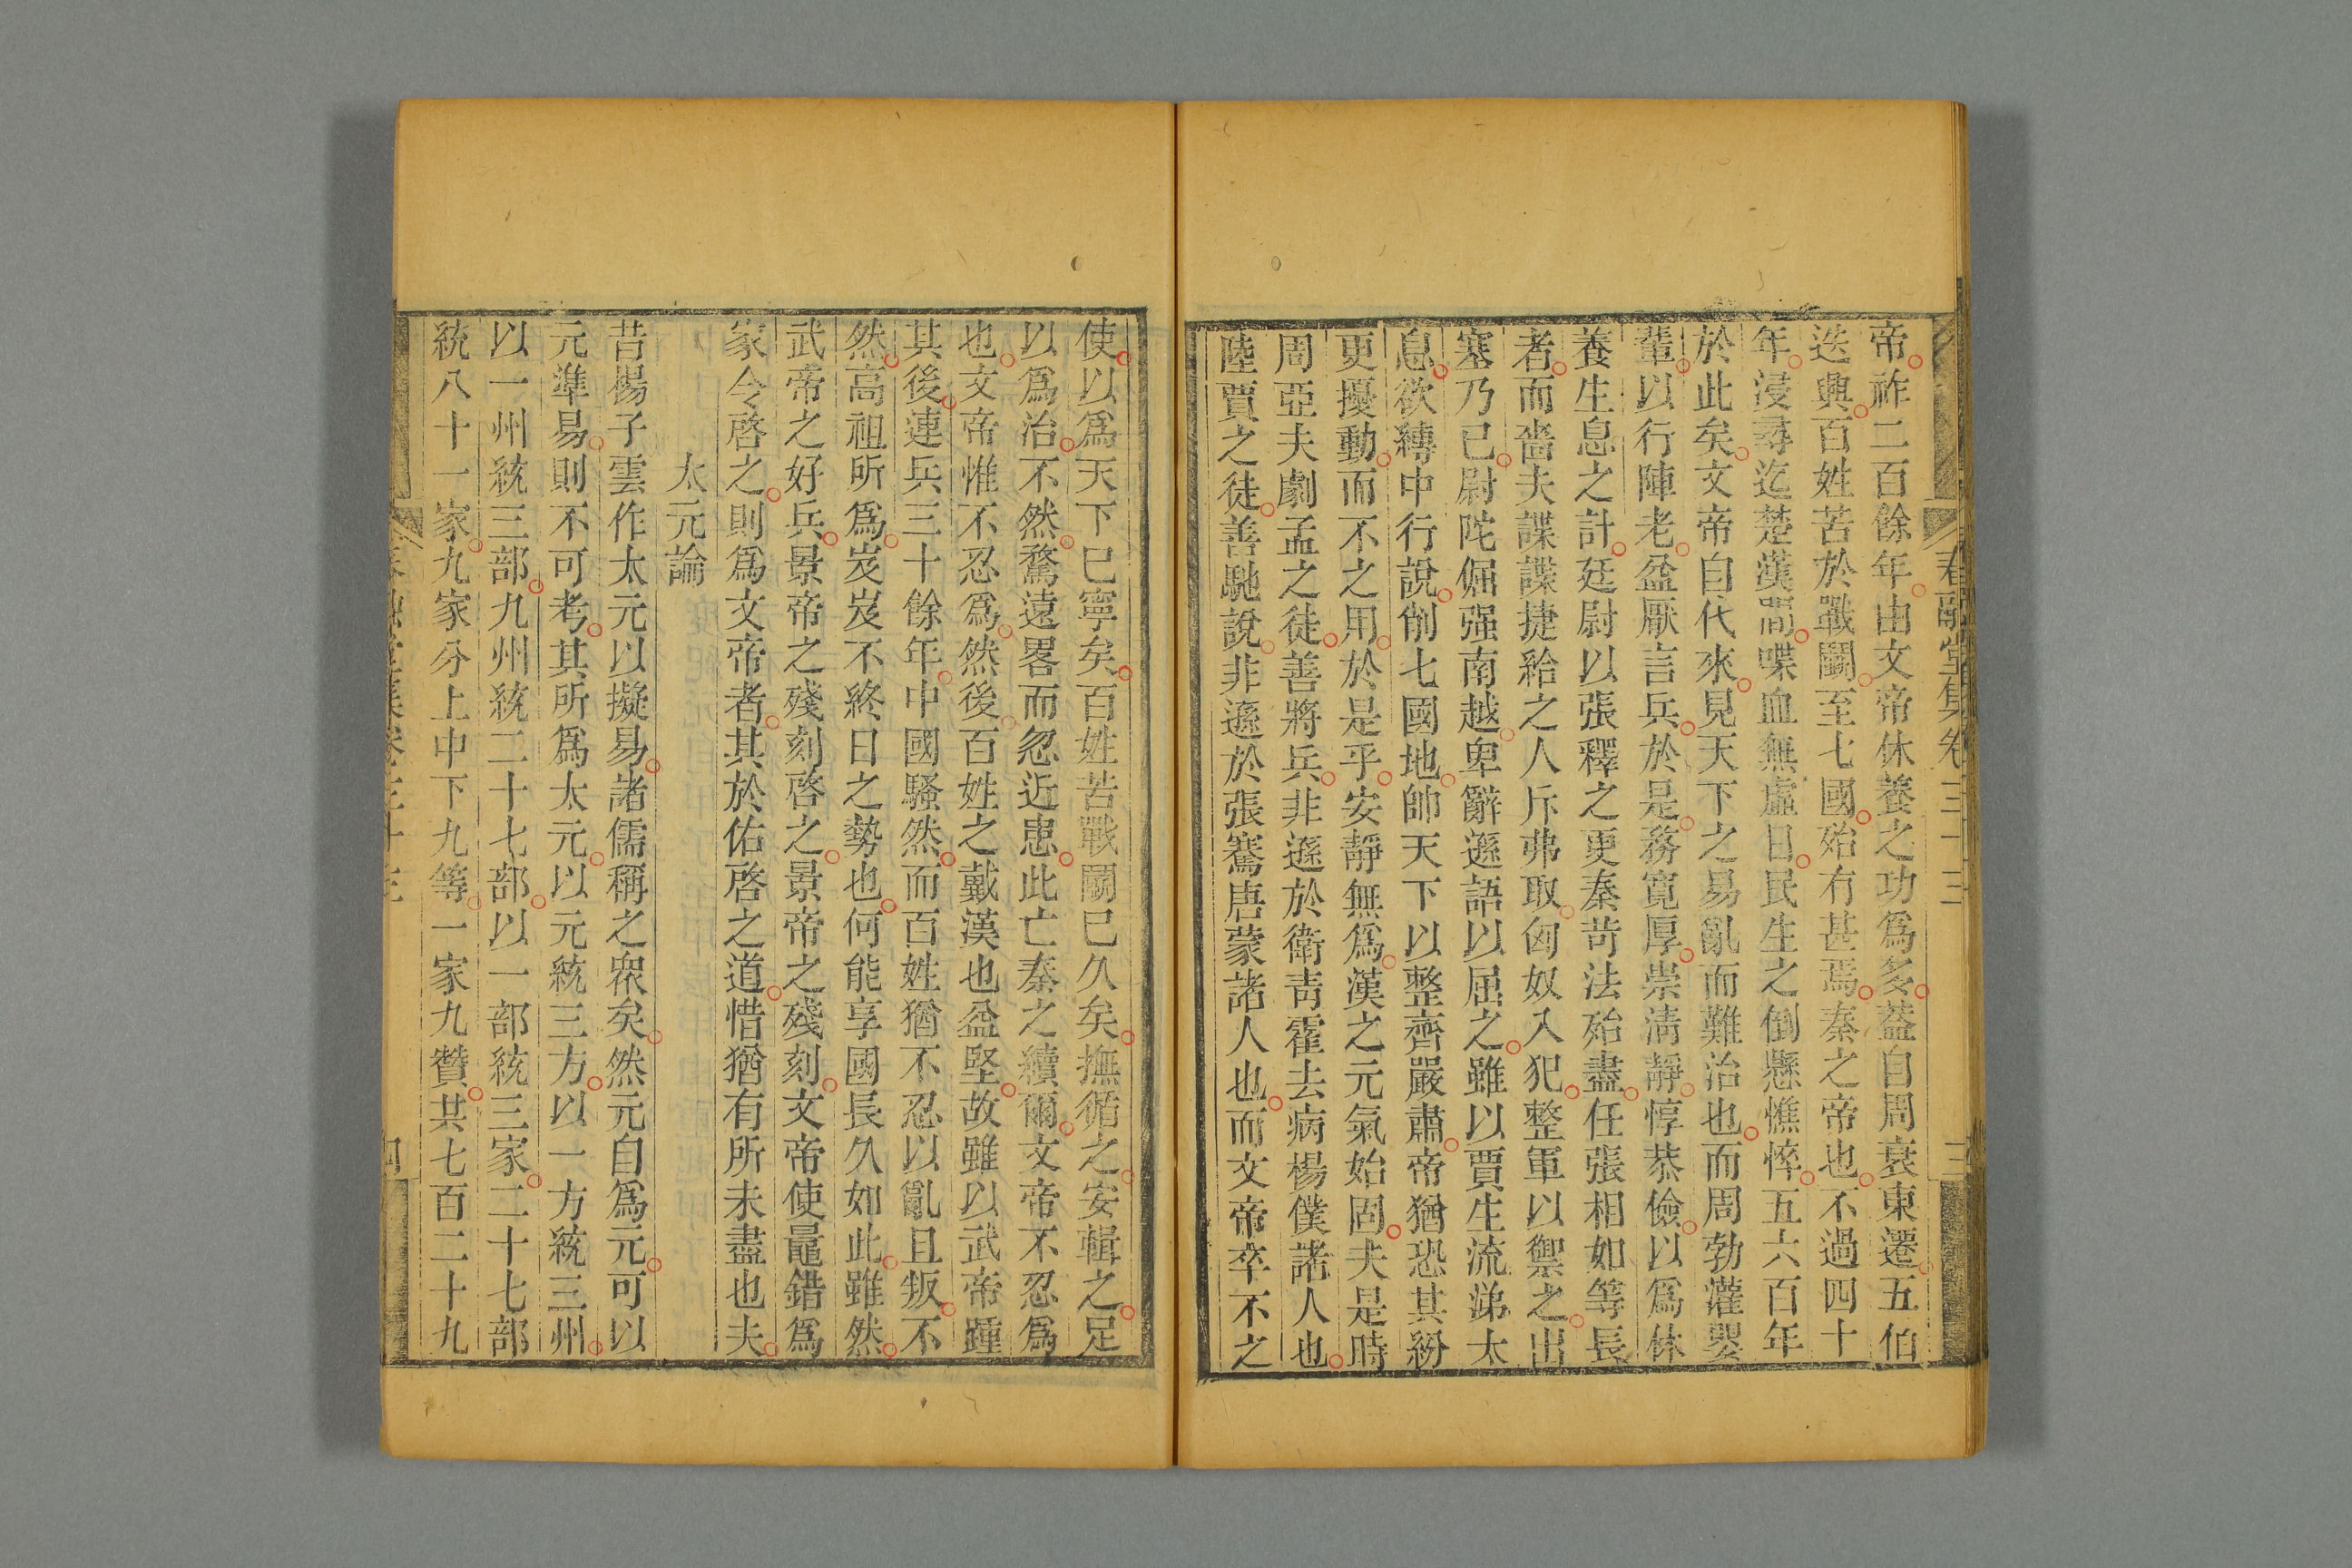 春融堂集卷三十三
三
帝祚二百餘年由文帝休養之功爲多葢自周衰東遷五伯
迭興百姓苦於戰鬭至七國殆有甚焉秦之帝也不過四十
年浸尋迄楚漢間喋血無虛日民生之倒懸憔悴五六百年
於此矣文帝自代來見天下之易亂而難治也而周勃灌嬰
輩以行陣老盆厭言兵於是務寬厚崇淸靜惇恭儉以爲休
養生息之計廷尉以張釋之更秦苛法殆盡任張相如等長
者而嗇夫諜諜捷給之人斥弗取匈奴入犯整軍以禦之出
塞乃已尉陀倔强南越卑辭遜語以屈之雖以賈生流涕太
息欲縛中行說削七國地帥天下以整齊嚴肅帝猶恐其紛
更擾動而不之用於是乎安靜無爲漢之元氣始固夫是時
周亞夫劇孟之徒善將兵非遜於衛靑霍去病楊僕諸人也
陸賈之徒善馳說非遜於張騫唐蒙諸人也而文帝卒不之
使以爲天下已寧矣百姓苦戰鬭已久矣撫循之安輯之足
以爲治不然騖遠畧而忽近患此亡秦之續爾文帝不忍爲
也文帝惟不忍爲然後百姓之戴漢也益堅故雖以武帝踵
其後連兵三十餘年中國騷然而百姓猶不忍以亂且叛不
然高祖所爲岌岌不終日之勢也何能享國長久如此雖然
武帝之好兵景帝之殘刻啓之景帝之殘刻文帝使鼂錯爲
家令啓之則爲文帝者其於佑啓之道惜猶有所未盡也夫
太元論
昔楊子雲作太元以擬易諸儒稱之衆矣然元自爲元可以
元準易則不可考其所爲太元以元統三方以一方統三州
以一州統三部九州統二十七部以一部統三家二十七部
統八十一家九家分上中下九等一家九贊其七百二十九
春融堂集卷三十三
四